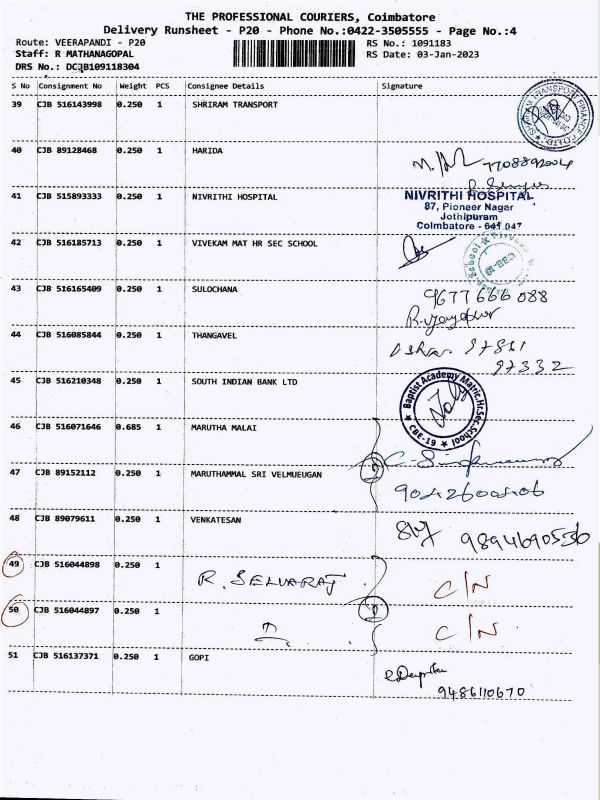 THE PROFESSIONAL COURIERS, Coimbatore
Delivery Runsheet - P20 - Phone No.:0422-3505555 - Page No.:4
Route: VEERAPANDI - P20 RS No.: 1091183
Staff: R MATHANAGOPAL RS Date: 03-Jan-2023
DRS No.: DCJB109118304
S No Consignment No Weight PCS Consignee Details Signature
39 CJB 516143998 0.250 1 SHRIRAM TRANSPORT
40 CJB 89128468 0.250 1 HARIDA
41 CJB 515893333 0.250 1 NIVRITHI HOSPITAL NIVRITHI HOSPITAL
87, Pioneer Nagar
Jothipuram
Coimbatore - 641 047
42 CJB 516185713 0.250 1 VIVEKAM MAT HR SEC SCHOOL
43 CJB 516165409 0.250 1 SULOCHANA 9677666088
44 CJB 516085844 0.250 1 THANGAVEL
97332
45 CJB 516210348 0.250 1 SOUTH INDIAN BANK LTD Baptist Academy Matric.Hr.Sec.School CBE-19
46 CJB 516071646 0.685 1 MARUTHA MALAI
47 CJB 89152112 0.250 1 MARUTHAMMAL SRI VELMUEUGAN
48 CJB 89079611 0.250 1 VENKATESAN 9894690536
49 CJB 516044898 0.250 1 R. SELVARAJ C/N
50 CJB 516044897 0.250 1 C/N
51 CJB 516137371 0.250 1 GOPI
9486110670